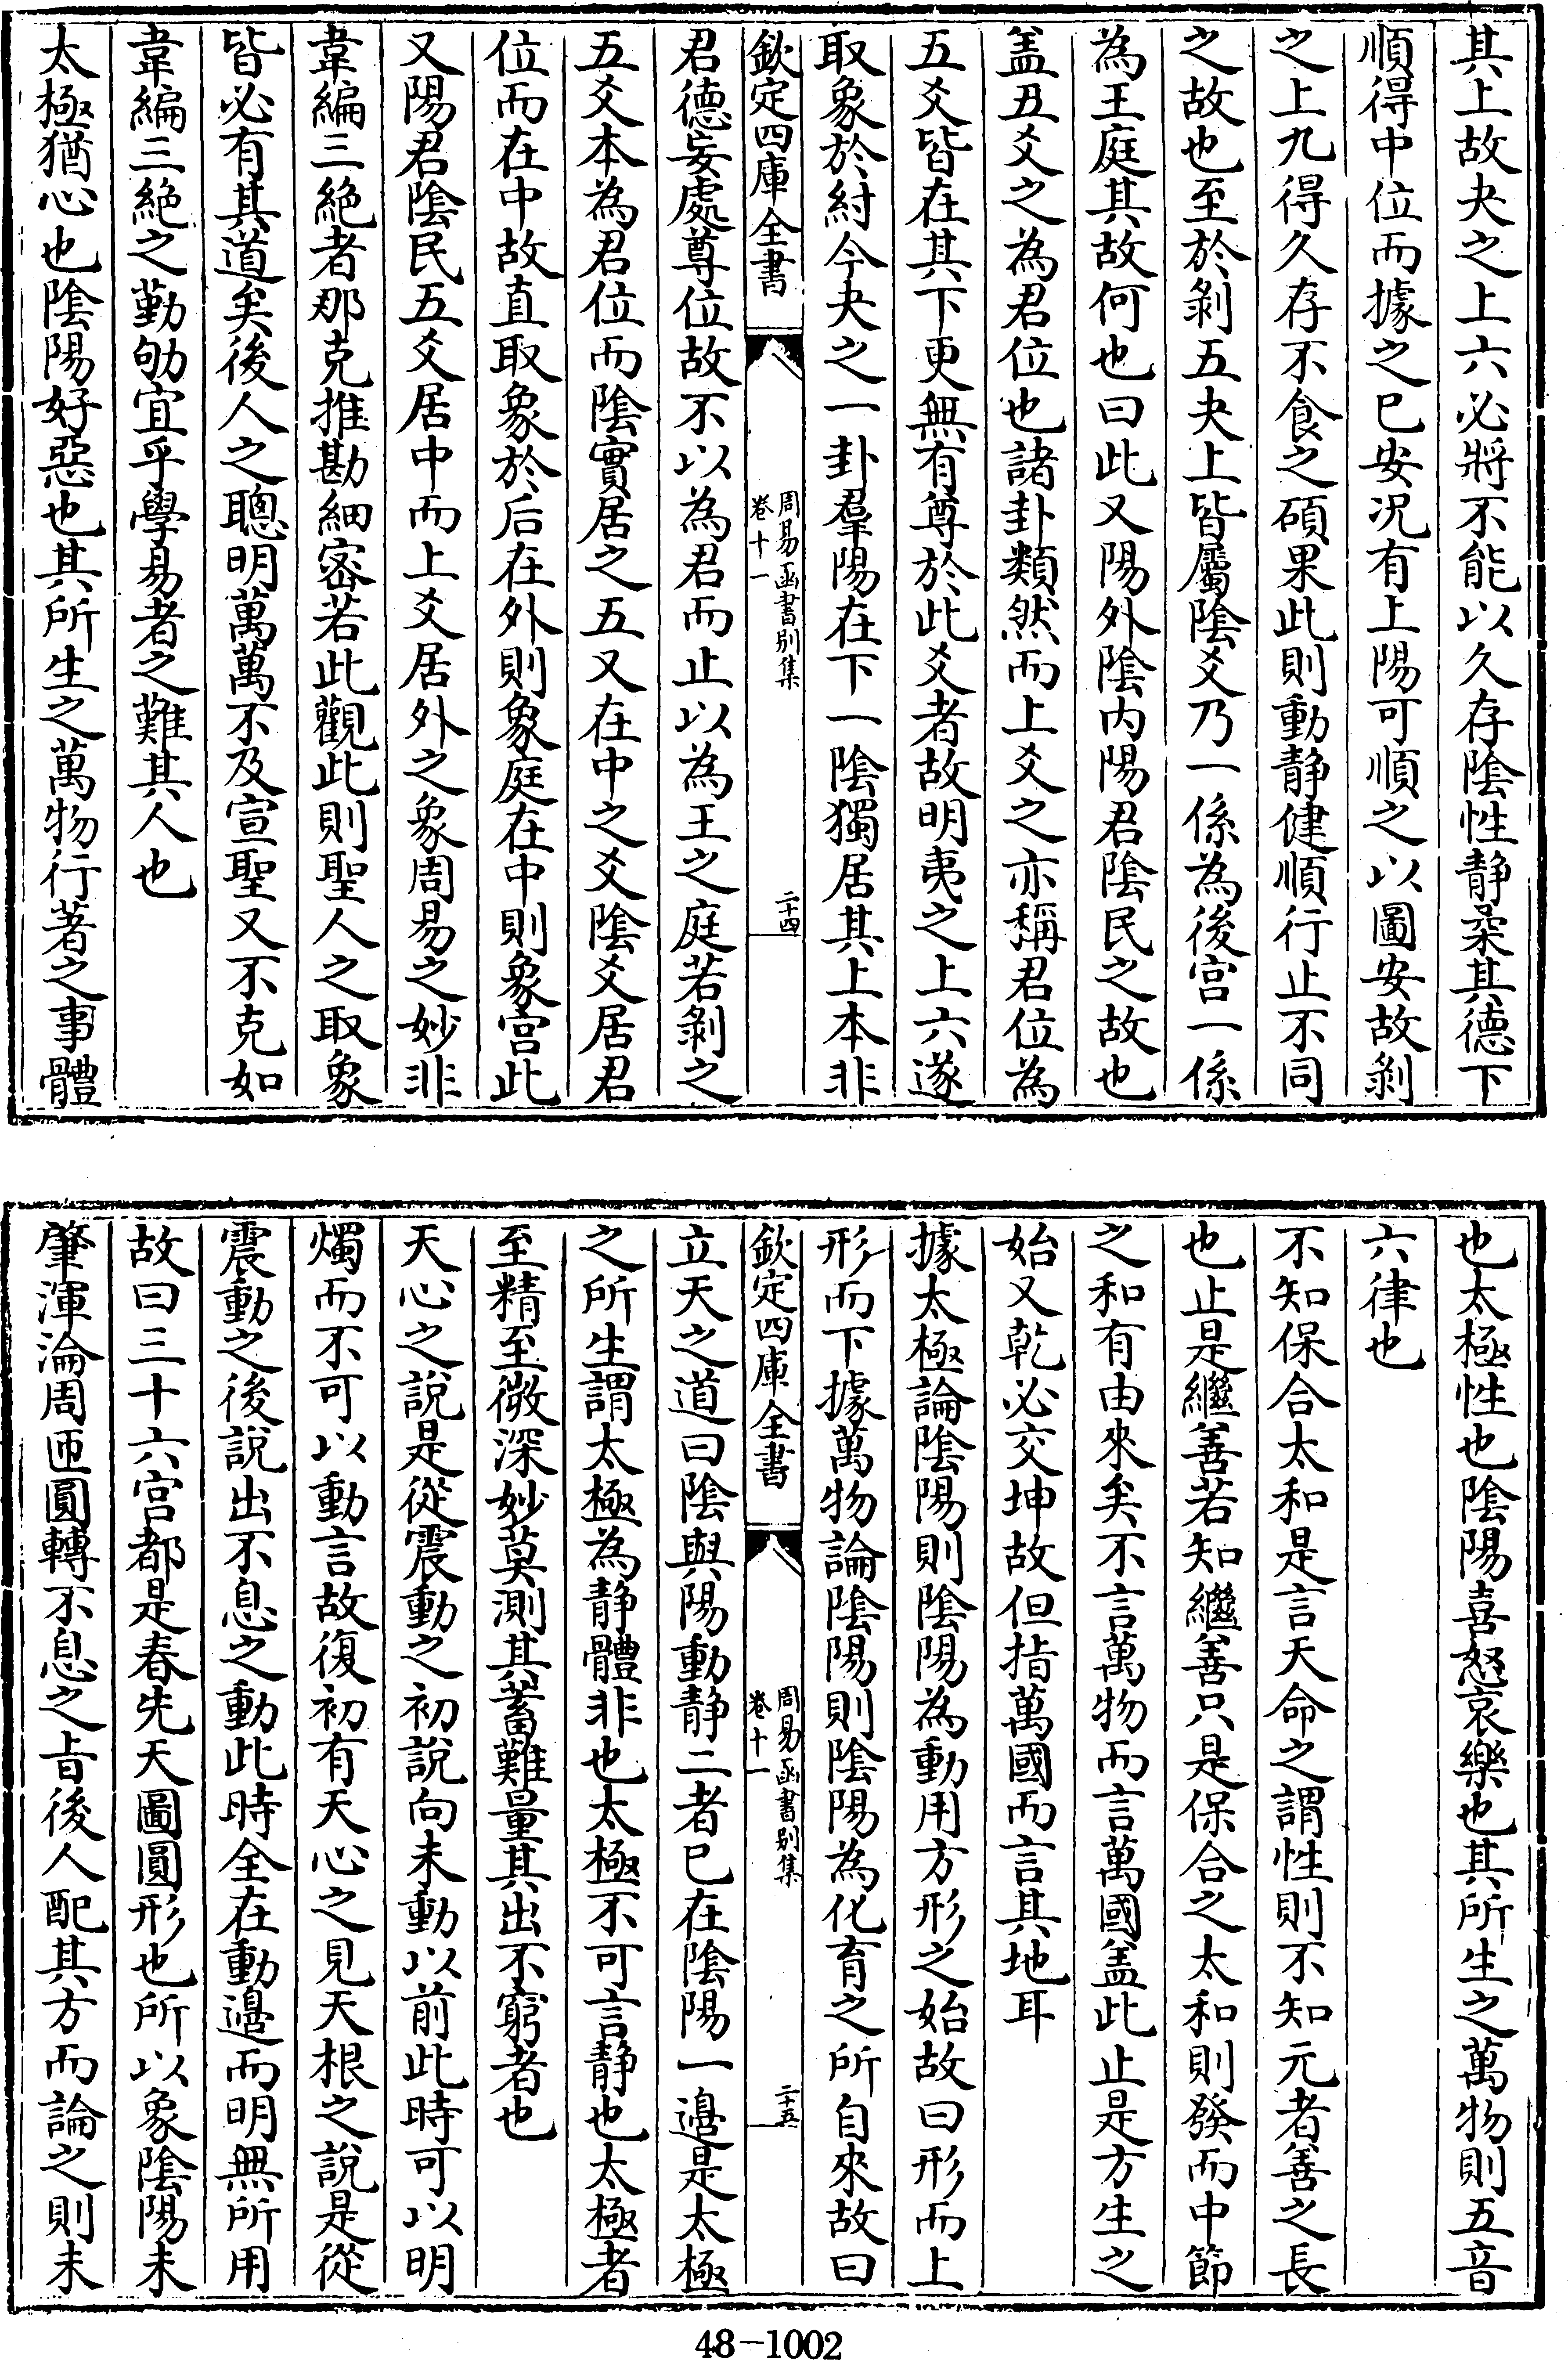 其上故夬之上六必將不能以久存陰性静柔其德下
順得中位而據之已安况有上陽可順之以圖安故剝
之上九得久存不食之碩果此則動静健順行止不同
之故也至於剝五夬上皆屬陰爻乃一係為後宫一係
為王庭其故何也曰此又陽外陰内陽君陰民之故也
盖五爻之為君位也諸卦類然而上爻之亦稱君位為
五爻皆在其下更無有尊於此爻者故明夷之上六遂
取象於紂今夬之一卦羣陽在下一陰獨居其上本非
欽定四庫全書
周易函書别集
卷十一
二十四
君德妄處尊位故不以為君而止以為王之庭若剝之
五爻本為君位而陰實居之五又在中之爻陰爻居君
位而在中故直取象於后在外則象庭在中則象宫此
又陽君陰民五爻居中而上爻居外之象周易之妙非
韋編三絶者那克推勘細密若此觀此則聖人之取象
皆必有其道矣後人之聰明萬萬不及宣聖又不克如
韋編三絶之勤劬宜乎學易者之難其人也
太極猶心也陰陽好惡也其所生之萬物行著之事體
也太極性也陰陽喜怒哀樂也其所生之萬物則五音
六律也
不知保合太和是言天命之謂性則不知元者善之長
也止是繼善若知繼善只是保合之太和則發而中節
之和有由來矣不言萬物而言萬國盖此止是方生之
始又乾必交坤故但指萬國而言其地耳
據太極論陰陽則陰陽為動用方形之始故曰形而上
形而下據萬物論陰陽則陰陽為化育之所自來故曰
欽定四庫全書
周易函書别集
卷十一
二十五
立天之道曰陰與陽動静二者已在陰陽一邊是太極
之所生謂太極為静體非也太極不可言静也太極者
至精至微深妙莫測其蓄難量其出不窮者也
天心之說是從震動之初說向未動以前此時可以明
燭而不可以動言故復初有天心之見天根之說是從
震動之後說出不息之動此時全在動邉而明無所用
故曰三十六宫都是春先天圖圓形也所以象陰陽未
肇渾淪周匝圓轉不息之㫖後人配其方而論之則未
48-1002